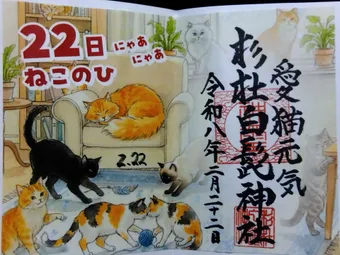 22日
ねこのひ
にゃあ
にゃあ
2.22
愛猫元気
杉杜白髭神社
令和八年二月二十二日